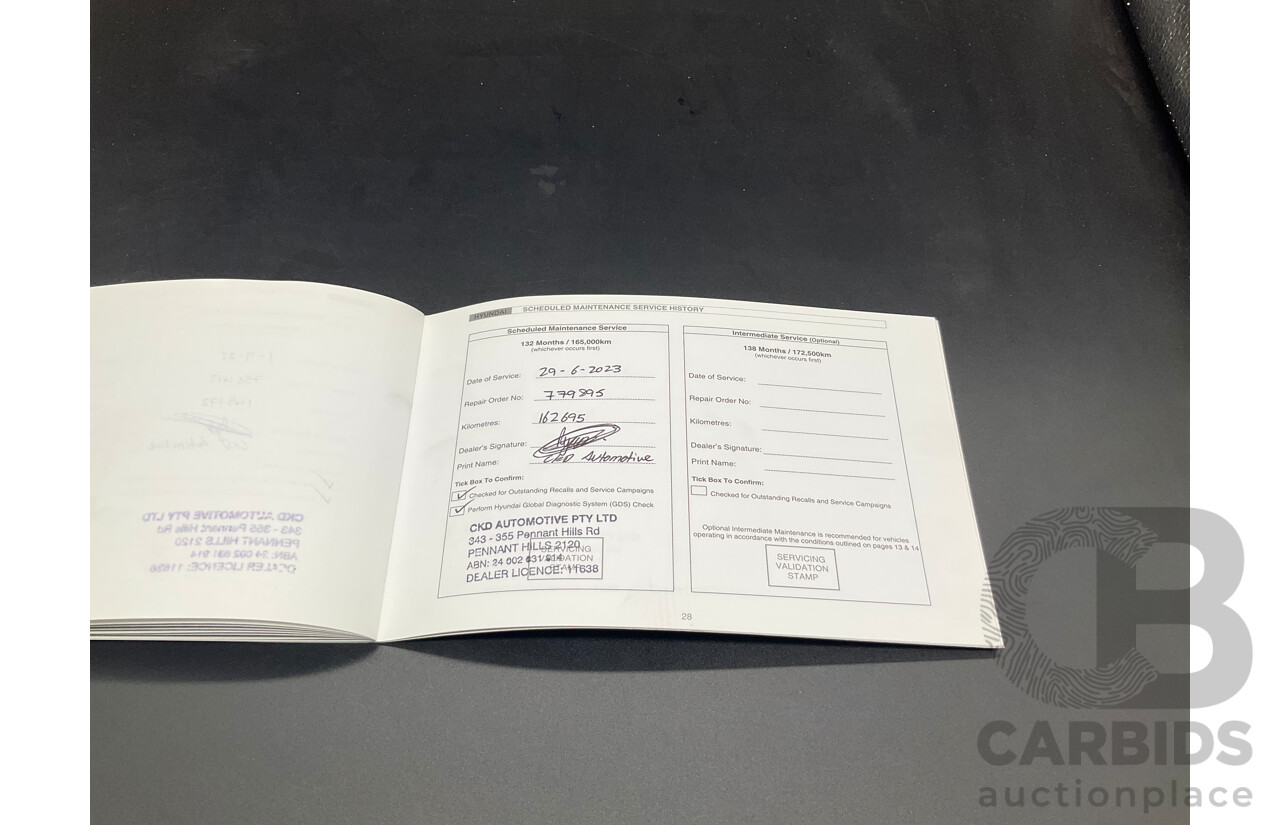 HYUNDAI SCHEDULED MAINTENANCE SERVICE HISTORY
Scheduled Maintenance Service
132 Months / 165,000km
(whichever occurs first)
Date of Service: 29-6-2023
Repair Order No: 779895
Kilometres: 162695
Dealer's Signature:
Print Name: CKD Automotive
Tick Box To Confirm:
Checked for Outstanding Recalls and Service Campaigns
Perform Hyundai Global Diagnostic System (GDS) Check
CKD AUTOMOTIVE PTY LTD
343 - 355 Pennant Hills Rd
PENNANT HILLS 2120
ABN: 24 002 631 914
DEALER LICENCE: 11638
SERVICING
VALIDATION
STAMP
Intermediate Service (Optional)
138 Months / 172,500km
(whichever occurs first)
Date of Service:
Repair Order No:
Kilometres:
Dealer's Signature:
Print Name:
Tick Box To Confirm:
Checked for Outstanding Recalls and Service Campaigns
Optional Intermediate Maintenance is recommended for vehicles
operating in accordance with the conditions outlined on pages 13 & 14
SERVICING
VALIDATION
STAMP
28
CB
CARBIDS
auctionplace